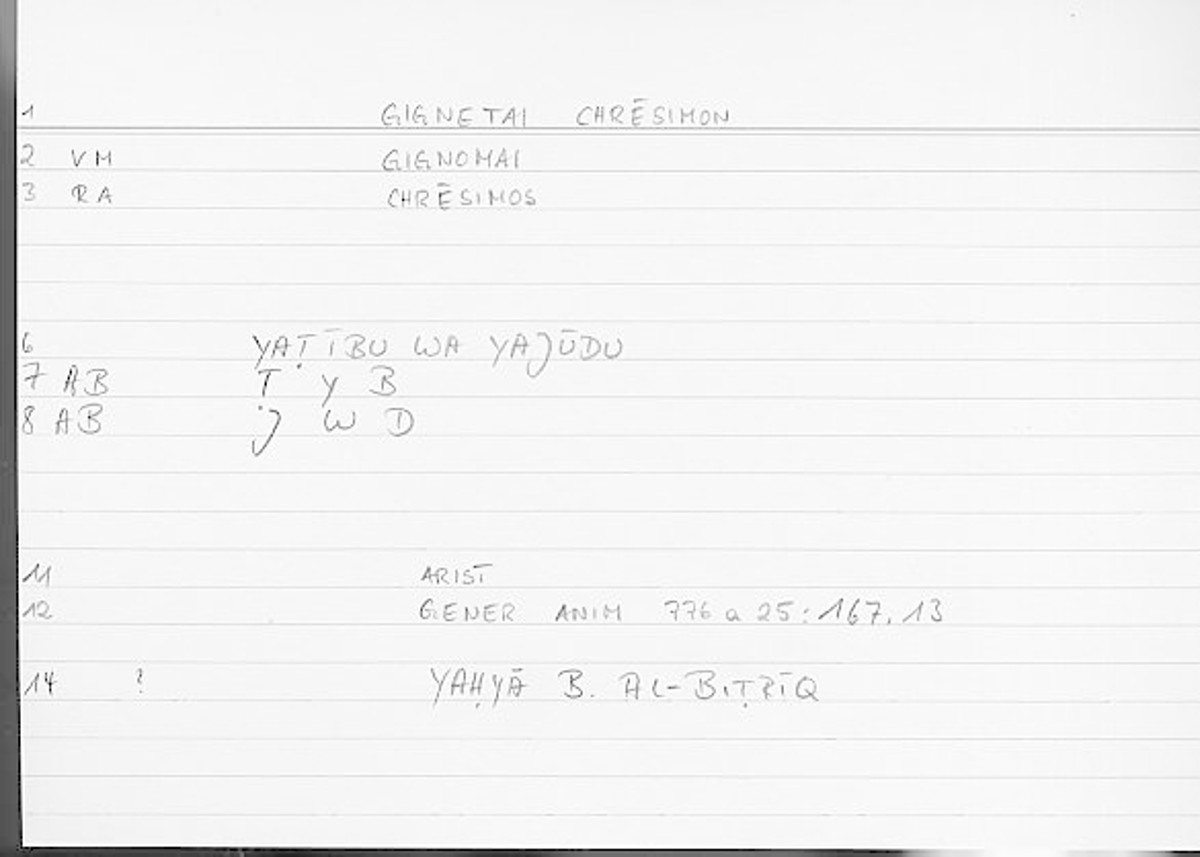 1 GIGNETAI CHRĒSIMON
2 VM GIGNOMAI
3 RA CHRĒSIMOS
6 YAṬĪBU WA YAJŪDU
7 AB Ṭ Y B
8 AB J W D
11 ARIST
12 GENER ANIM 776 a 25: 167, 13
14 ? YAḤYĀ B. AL-BIṬRĪQ